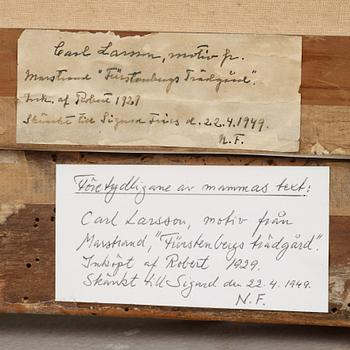 Carl Larsson, motiv fr.
Marstrand "Fürstenbergs Trädgård".
Ink. af Robert 1929
Skänkt till Sigurd Fries d. 22.4.1949.
N.F.
Förtydligane av mammas text:
Carl Larsson, motiv från
Marstrand, "Fürstenbergs trädgård".
Inköpt af Robert 1929.
Skänkt till Sigurd den 22.4.1949.
N.F.